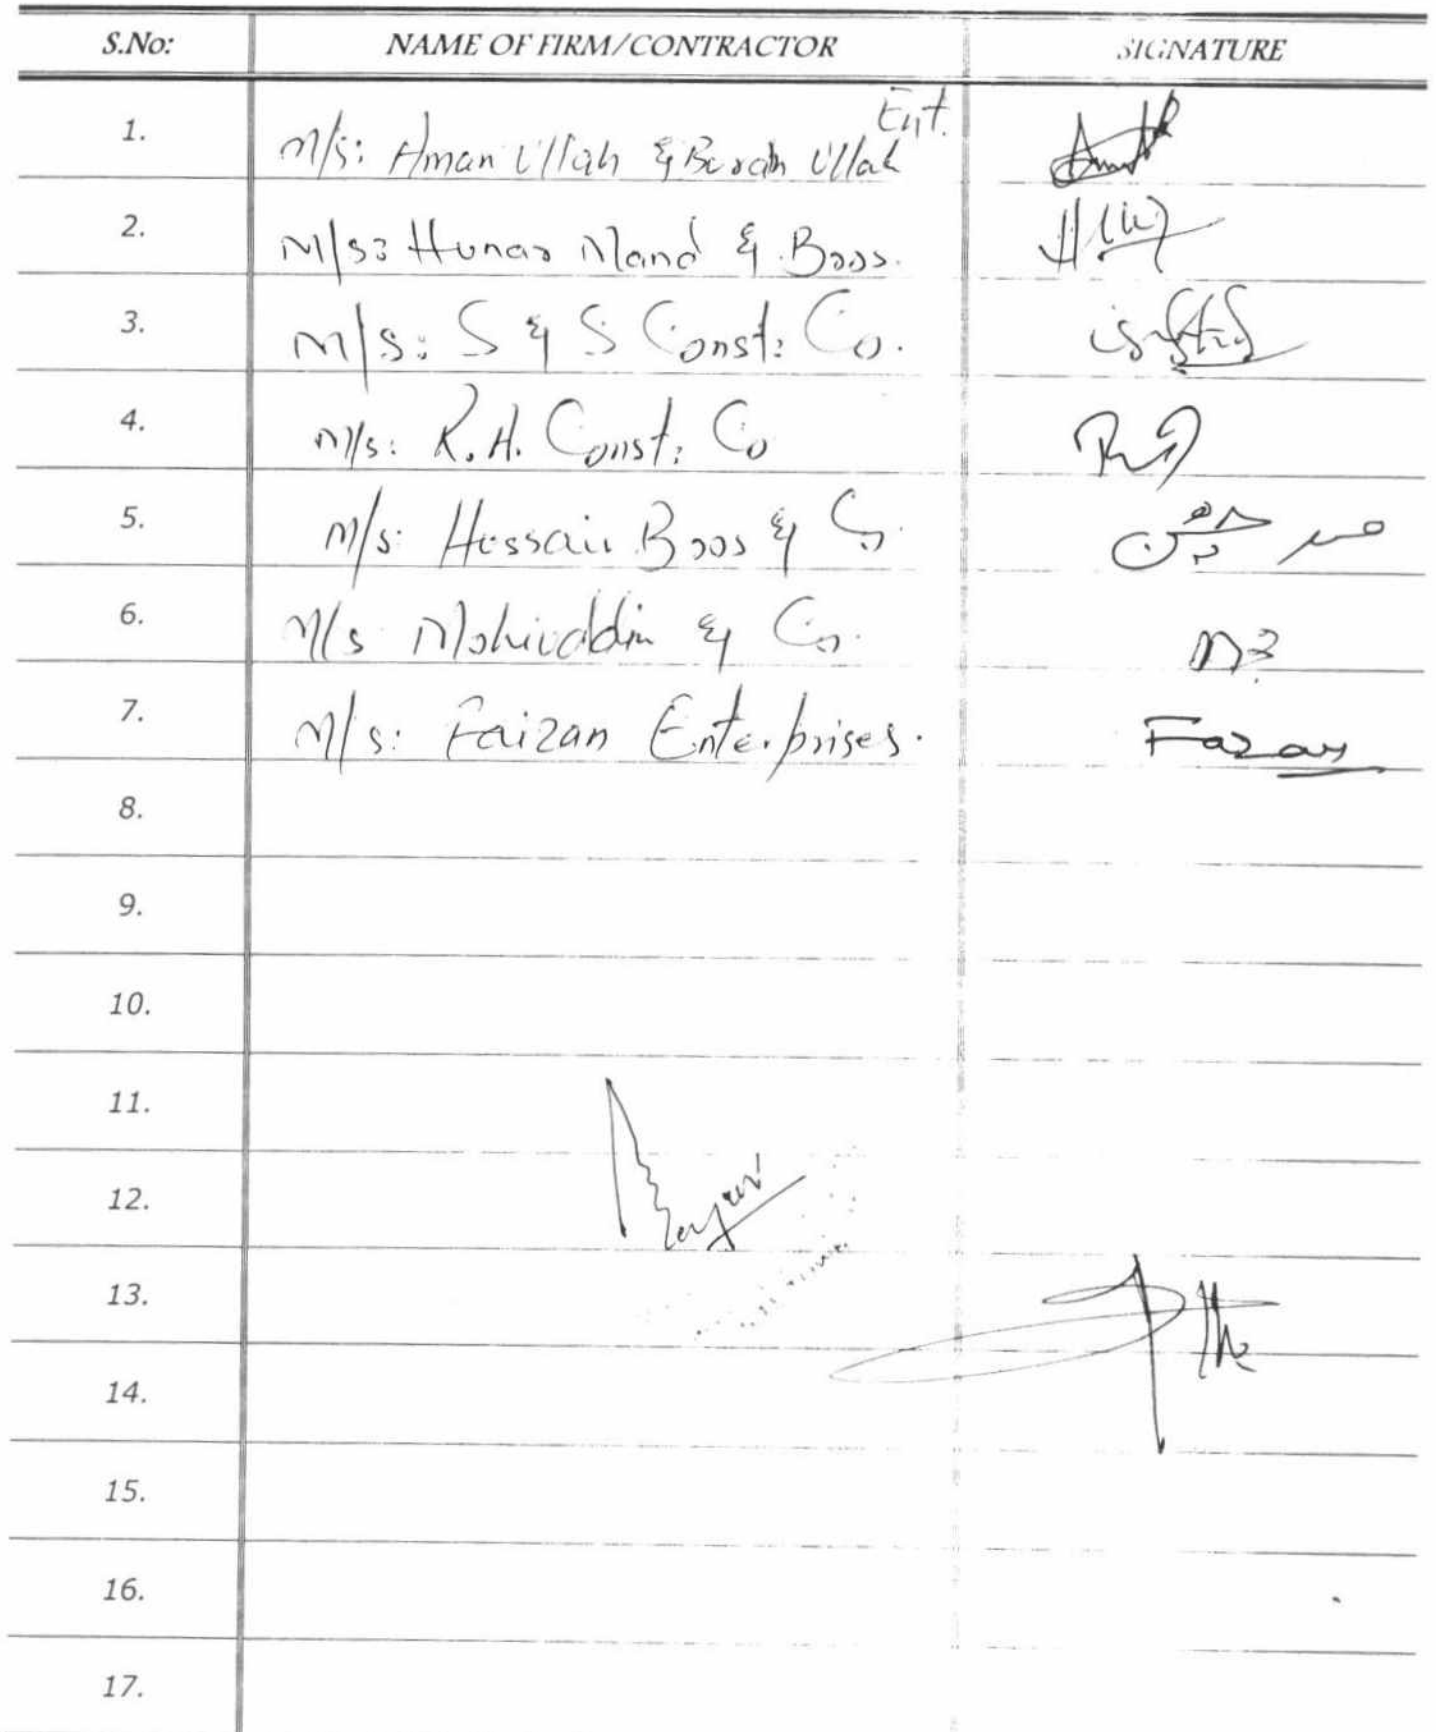 S.No: NAME OF FIRM/CONTRACTOR SIGNATURE
1. M/s: Aman Ullah & Ullah Ent.
2. M/s: Hunar Mand & Bros.
3. M/s: S & S Const: Co.
4. M/s: R.H. Const: Co
5. M/s: Hussain Bros & Co.
6. M/s Mohiuddin & Co.
7. M/s: Faizan Enterprises. Fazan
8.
9.
10.
11.
12.
13.
14.
15.
16.
17.